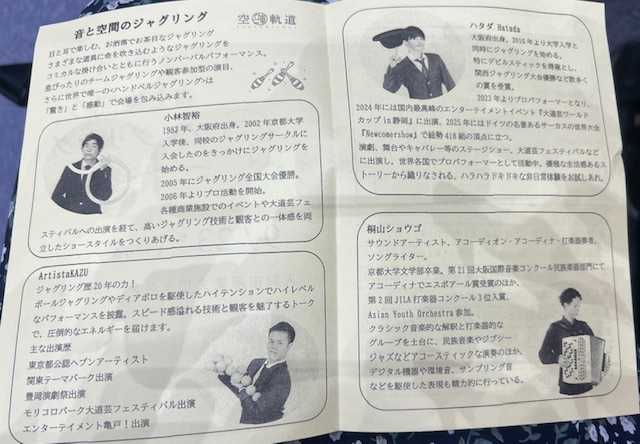 音と空間のジャグリング
空 軌道
目と耳で楽しむ、お洒落でお茶目なジャグリング
さまざまな道具に命を吹き込むようなジャグリング
コミカルな掛け合いとともに行うノンバーバルパフォーマンス。
息ぴったりのチームジャグリングや観客参加型の演目、
さらに世界で唯一の<ハンドベルジャグリング>は
「驚き」と「感動」で会場を包み込みます。
小林智裕
1982年、大阪府出身。2002年京都大学
入学後、同校のジャグリングサークルに
入会したのをきっかけにジャグリングを
始める。
2005年にジャグリング全国大会優勝。
2006年よりプロ活動を開始。
各種商業施設でのイベントや大道芸フェ
スティバルへの出演を経て、高いジャグリング技術と観客との一体感を両
立したショースタイルをつくりあげる。
ArtistaKAZU
ジャグリング歴20年の力！
ボールジャグリングやディアボロを駆使したハイテンションでハイレベル
なパフォーマンスを披露。スピード感溢れる技術と観客を魅了するトーク
で、圧倒的なエネルギーを届けます。
主な出演歴
東京都公認ヘブンアーティスト
関東テーマパーク出演
豊岡演劇祭出演
モリコロパーク大道芸フェスティバル出演
エンターテイメント亀戸！出演
ハタダ Hatada
大阪府出身。2016年より大学入学と
同時にジャグリングを始める。
特にデビルスティックを得意とし、
関西ジャグリング大会優勝など数多く
の賞を受賞。
2023年よりプロパフォーマーとなり、
2024年には国内最高峰のエンターテイメントイベント『大道芸ワールド
カップin静岡』に出演。2025年にはドイツの名誉あるサーカスの世界大会
『Newcomershow』で総勢418組の頂点に立つ。
演劇、舞台やキャバレー等のステージショー、大道芸フェスティバルなど
に出演し、世界各国でプロパフォーマーとして活動中。優雅な生活感あるス
トーリーから織りなされる、ハラハラドキドキな非日常体験をお試しあれ。
桐山ショウゴ
サウンドアーティスト、アコーディオン・アコーディナ・打楽器奏者、
ソングライター。
京都大学文学部卒業。第21回大阪国際音楽コンクール民族楽器部門にて
アコーディナでエスポアール賞受賞のほか、
第2回JILA打楽器コンクール3位入賞。
Asian Youth Orchestra 参加。
クラシック音楽的な解釈と打楽器的な
グルーブを土台に、民族音楽やジプシー
ジャズなどアコースティックな演奏のほか、
デジタル機器や環境音、サンプリング音
などを駆使した表現も精力的に行っている。